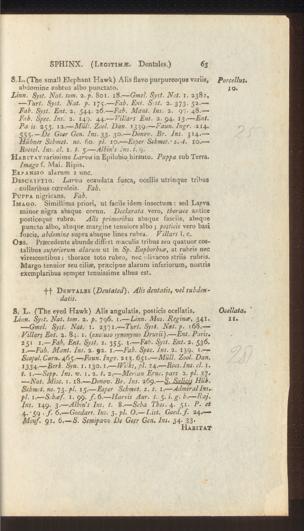 SPHINX. (LEGITIMÆ. Dentales.) 65
8. L. (The small Elephant Hawk) Alis flavo purpureoque variis, abdomine subtus albo punctato.
Porcellus.
10.
Linn. Syst. Nat. tom. 2. p. 801. 18.—Gmel. Syst. Nat. 1. 2382.
—Turt. Syst. Nat. p. 175.—Fab. Ent. Syst. 2. 373. 52.—
Fab. Syst. Ent. 2. 544. 26.—Fab. Mant. Ins. 2. 97. 48.—
Fab. Spec. Ins. 2. 149. 44.—Villars Ent. 2. 94. 13.—Ent.
Paris. 255. 12.—Müll. Zool. Dan. 1339.—Faun. Ingr. 214.
555.—De Geer Gen. Ins. 33. 30.—Donov. Br. Ins. 314.—
Hübner Schmet. ne. 60. pl. 10.—Esper Schmet. 2. t. 10.—
Roesel. Ins. cl. 1. t. 5.—Albin's Ins. t. 9.
HABITAT rarissime Larva in Epilobio hirsuto. Puppa sub Terra.
Imago f. Mai. Ripis.
EXPANSIO alarum 2 unc.
DESCRIPTIO. Larva ocendata fusca, ocellis utrinque tribus
collaribus cœruleis. Fab.
PUPPA nigricans. Fab.
IMAGO. Simillima priori, ut facile idem insectum: sed Larva
minor nigra absque cornu. Declarata vero, thorace antice
posticeque rubro. Alis primoribus absque fasciis, absque
puncto albo, absque margine tensiore albo; posticis vero basi
fuscis, abdomine supra absque linea rubra. Villars l. c.
OBS. Præcedente abunde differt maculis tribus seu quatuor cos-
talibus superiorum alarum ut in Sp. Euphorbiæ, at rubris nec
virescentibus: thorace toto rubro, nec olivaceo striis rubris.
Margo tensior seu ciliæ, præcipue alarum inferiorum, nostris
exemplaribus semper tenuissime albus est.
†† DENTALES (Dentated). Alis dentatis, vel subden-
datis.
S. L. (The eyed Hawk) Alis angulatis, posticis ocellatis.
Ocellata.
11.
Linn. Syst. Nat. tom. 2. p. 796. 1.—Linn. Mus. Reginæ, 341.
—Gmel. Syst. Nat. 1. 2371.—Turt. Syst. Nat. p. 168.—
Villars Ent. 2. 84. 1. (excusse synonymo Drurii)—Ent. Paris.
251 1.—Fab. Ent. Syst. 1. 355. 1.—Fab. Syst. Ent. 2. 536.
1.—Fab. Mant. Ins. 2. 92. 1.—Fab. Spec. Ins. 2. 139. 1.—
Scopol. Carn. 465.—Faun. Ingr. 213. 651.—Müll. Zool. Dan.
1334.—Berk. Syn. 1. 130. 1.—Wilks, pl. 24.—Roes. Ins. cl. 1.
t. 1.—Sepp. Ins. w. 1. 2. t. 2.—Merian Eruc. part 2. pl. 37.
—Nat. Misc. 1. 18.—Donov. Br. Ins. 269.—S. Salicis Hüb.
Schmet. ne. 73. pl. 15.—Esper Schmet. 2. t. 1.—Admiral Ins.
pl. 1.—Schæf. 1. 99. f. 6.—Harris Aur. t. 5. i. g. h.—Raj.
Ins. 149. 3.—Albin's Ins. t. 8.—Seba Thes. 4. 51. P. et
4. 59. f. 6.—Goedart. Ins. 3. pl. O.—List. Goed. f. 24.—
Mouf. 91. 6.—S. Semipavo De Geer Gen. Ins. 34. 33.
HABITAT